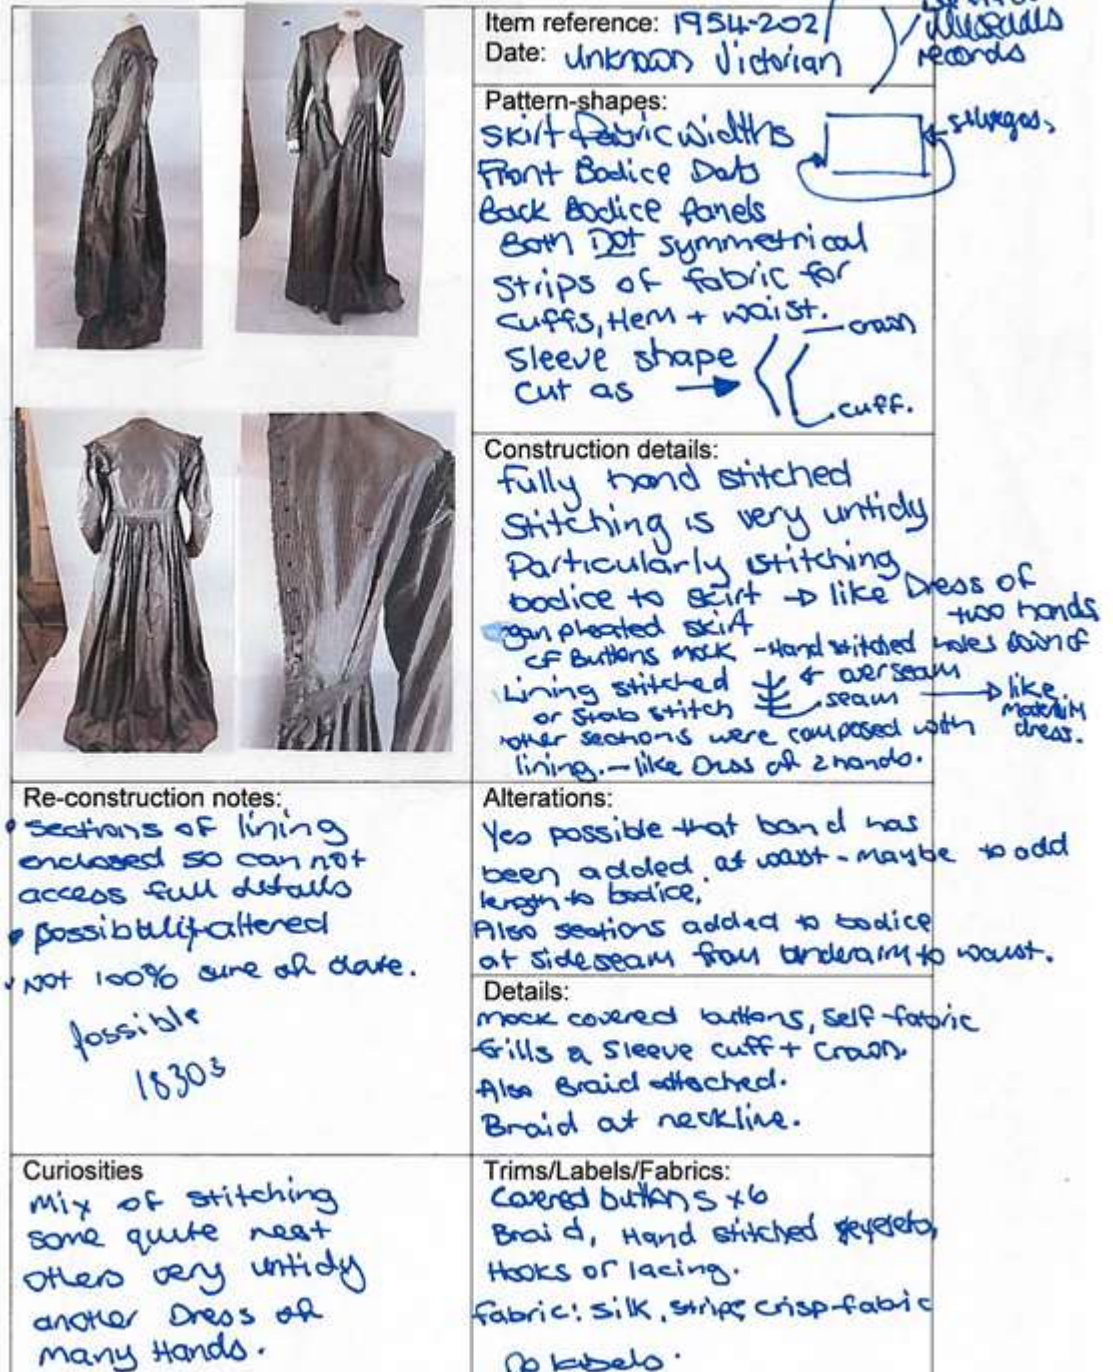 Item reference: 1954-202/
Date: Unknown Victorian
Museums
records
Pattern-shapes:
Skirt fabric widths
Front Bodice Dats
Back Bodice Panels
Both Not symmetrical
Strips of fabric for
Cuffs, Hem + waist.
Sleeve shape
Cut as
crown
cuff.
Construction details:
Fully hand stitched
Stitching is very untidy
Particularly stitching
bodice to skirt → like Dress of
two hands
pleated skirt
CF Buttons mock - Hand stitched holes down CF
Lining stitched
or stab stitch
over seam
seam
like
dress.
other sections were composed with
lining. - like Dress of 2 hands.
Re-construction notes:
• Sections of lining
enclosed so can not
access full details
• possibly altered
Not 100% sure of date.
possible
1830s
Alterations:
Yes possible that band has
been added at waist - maybe to add
length to bodice.
Also sections added to bodice
at sideseam from underarm to waist.
Details:
Mock covered buttons, self-fabric
Frills a Sleeve cuff + crown.
Also Braid attached.
Braid at neckline.
Curiosities
Mix of stitching
some quite neat
Others very untidy
another Dress of
many Hands.
Trims/Labels/Fabrics:
Covered buttons x6
Braid, Hand stitched eyelets,
Hooks or lacing.
fabric: silk, stripe crisp-fabric
No labels.